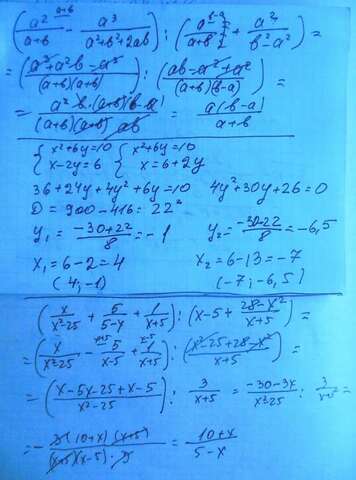 (a²/(a+b) - a³/(a²+b²+2ab)) : (a/(a+b) + a²/(b²-a²)) =
= (a³+a²b-a³)/((a+b)(a+b)) : (ab-a²+a²)/((a+b)(b-a)) =
= (a²b·(a+b)(b-a))/((a+b)(a+b)ab) = a(b-a)/(a+b)
{x²+6y=10 {x²+6y=10
{x-2y=6 {x=6+2y
36+24y+4y²+6y=10 4y²+30y+26=0
D=900-416=22²
y₁=(-30+22)/8=-1 y₂=(-30-22)/8=-6,5
x₁=6-2=4 x₂=6-13=-7
(4;-1) (-7;-6,5)
(x/(x²-25) + 5/(5-x) + 1/(x+5)) : (x-5+(28-x²)/(x+5)) =
=(x/(x²-25) - 5/(x-5) + 1/(x+5)) : ((x²-25+28-x²)/(x+5)) =
=((x-5x-25+x-5)/(x²-25)) : 3/(x+5) = (-30-3x)/(x²-25) : 3/(x+5) =
=-(3(10+x)(x+5))/((x+5)(x-5)·3) = (10+x)/(5-x)